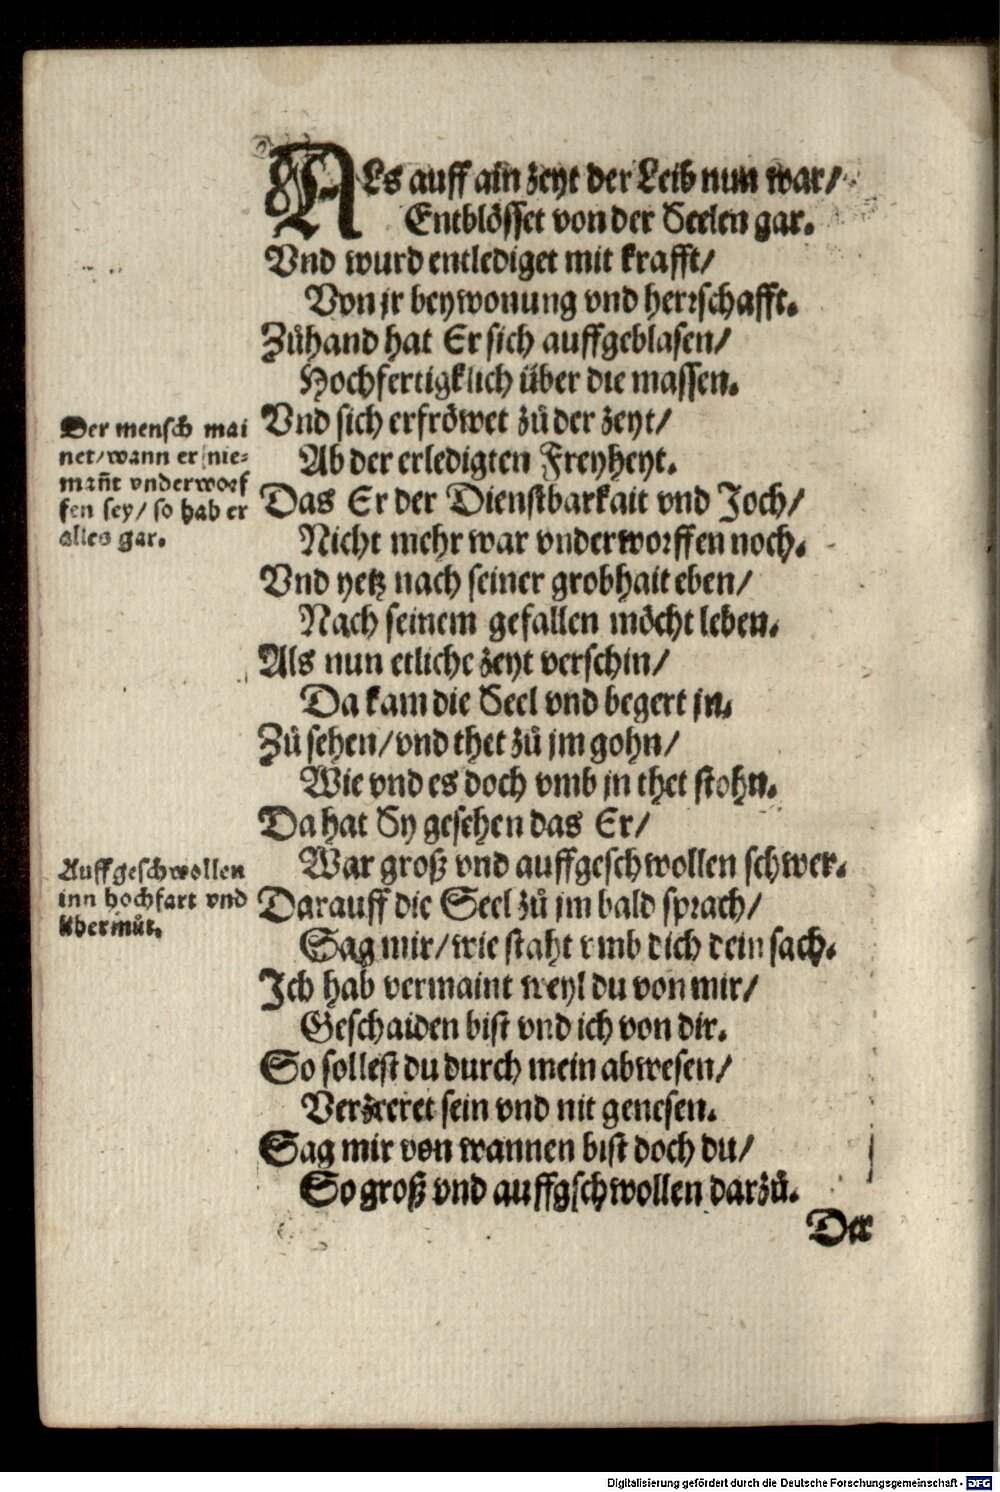 ALs auff ain zeyt der Leib nun war/
Entblösset von der Seelen gar.
Vnd wurd entlediget mit krafft/
Von jr beywonung vnd herrschafft.
Zůhand hat Er sich auffgeblasen/
Hochfertigklich über die massen.
Vnd sich erfröwet zů der zeyt/
Ab der erledigten Freyheyt.
Das Er der Dienstbarkait vnd Joch/
Nicht mehr war vnderworffen noch.
Vnd yetz nach seiner grobhait eben/
Nach seinem gefallen möcht leben.
Als nun etliche zeyt verschin/
Da kam die Seel vnd begert jn.
Zů sehen/vnd thet zů jm gohn/
Wie vnd es doch vmb jn thet stohn.
Da hat Sy gesehen das Er/
War groß vnd auffgeschwollen schwer.
Darauff die Seel zů jm bald sprach/
Sag mir/wie staht vmb dich dein sach.
Ich hab vermaint weyl du von mir/
Geschaiden bist vnd ich von dir.
So sollest du durch mein abwesen/
Verzeret sein vnd nit genesen.
Sag mir von wannen bist doch du/
So groß vnd auffgschwollen darzů.
Der
Der mensch mai
net/wann er nie-
mañt vnderworf
fen sey/ so hab er
alles gar.
Auffgeschwollen
inn hochfart vnd
übermůt.
Digitalisierung gefördert durch die Deutsche Forschungsgemeinschaft - DFG